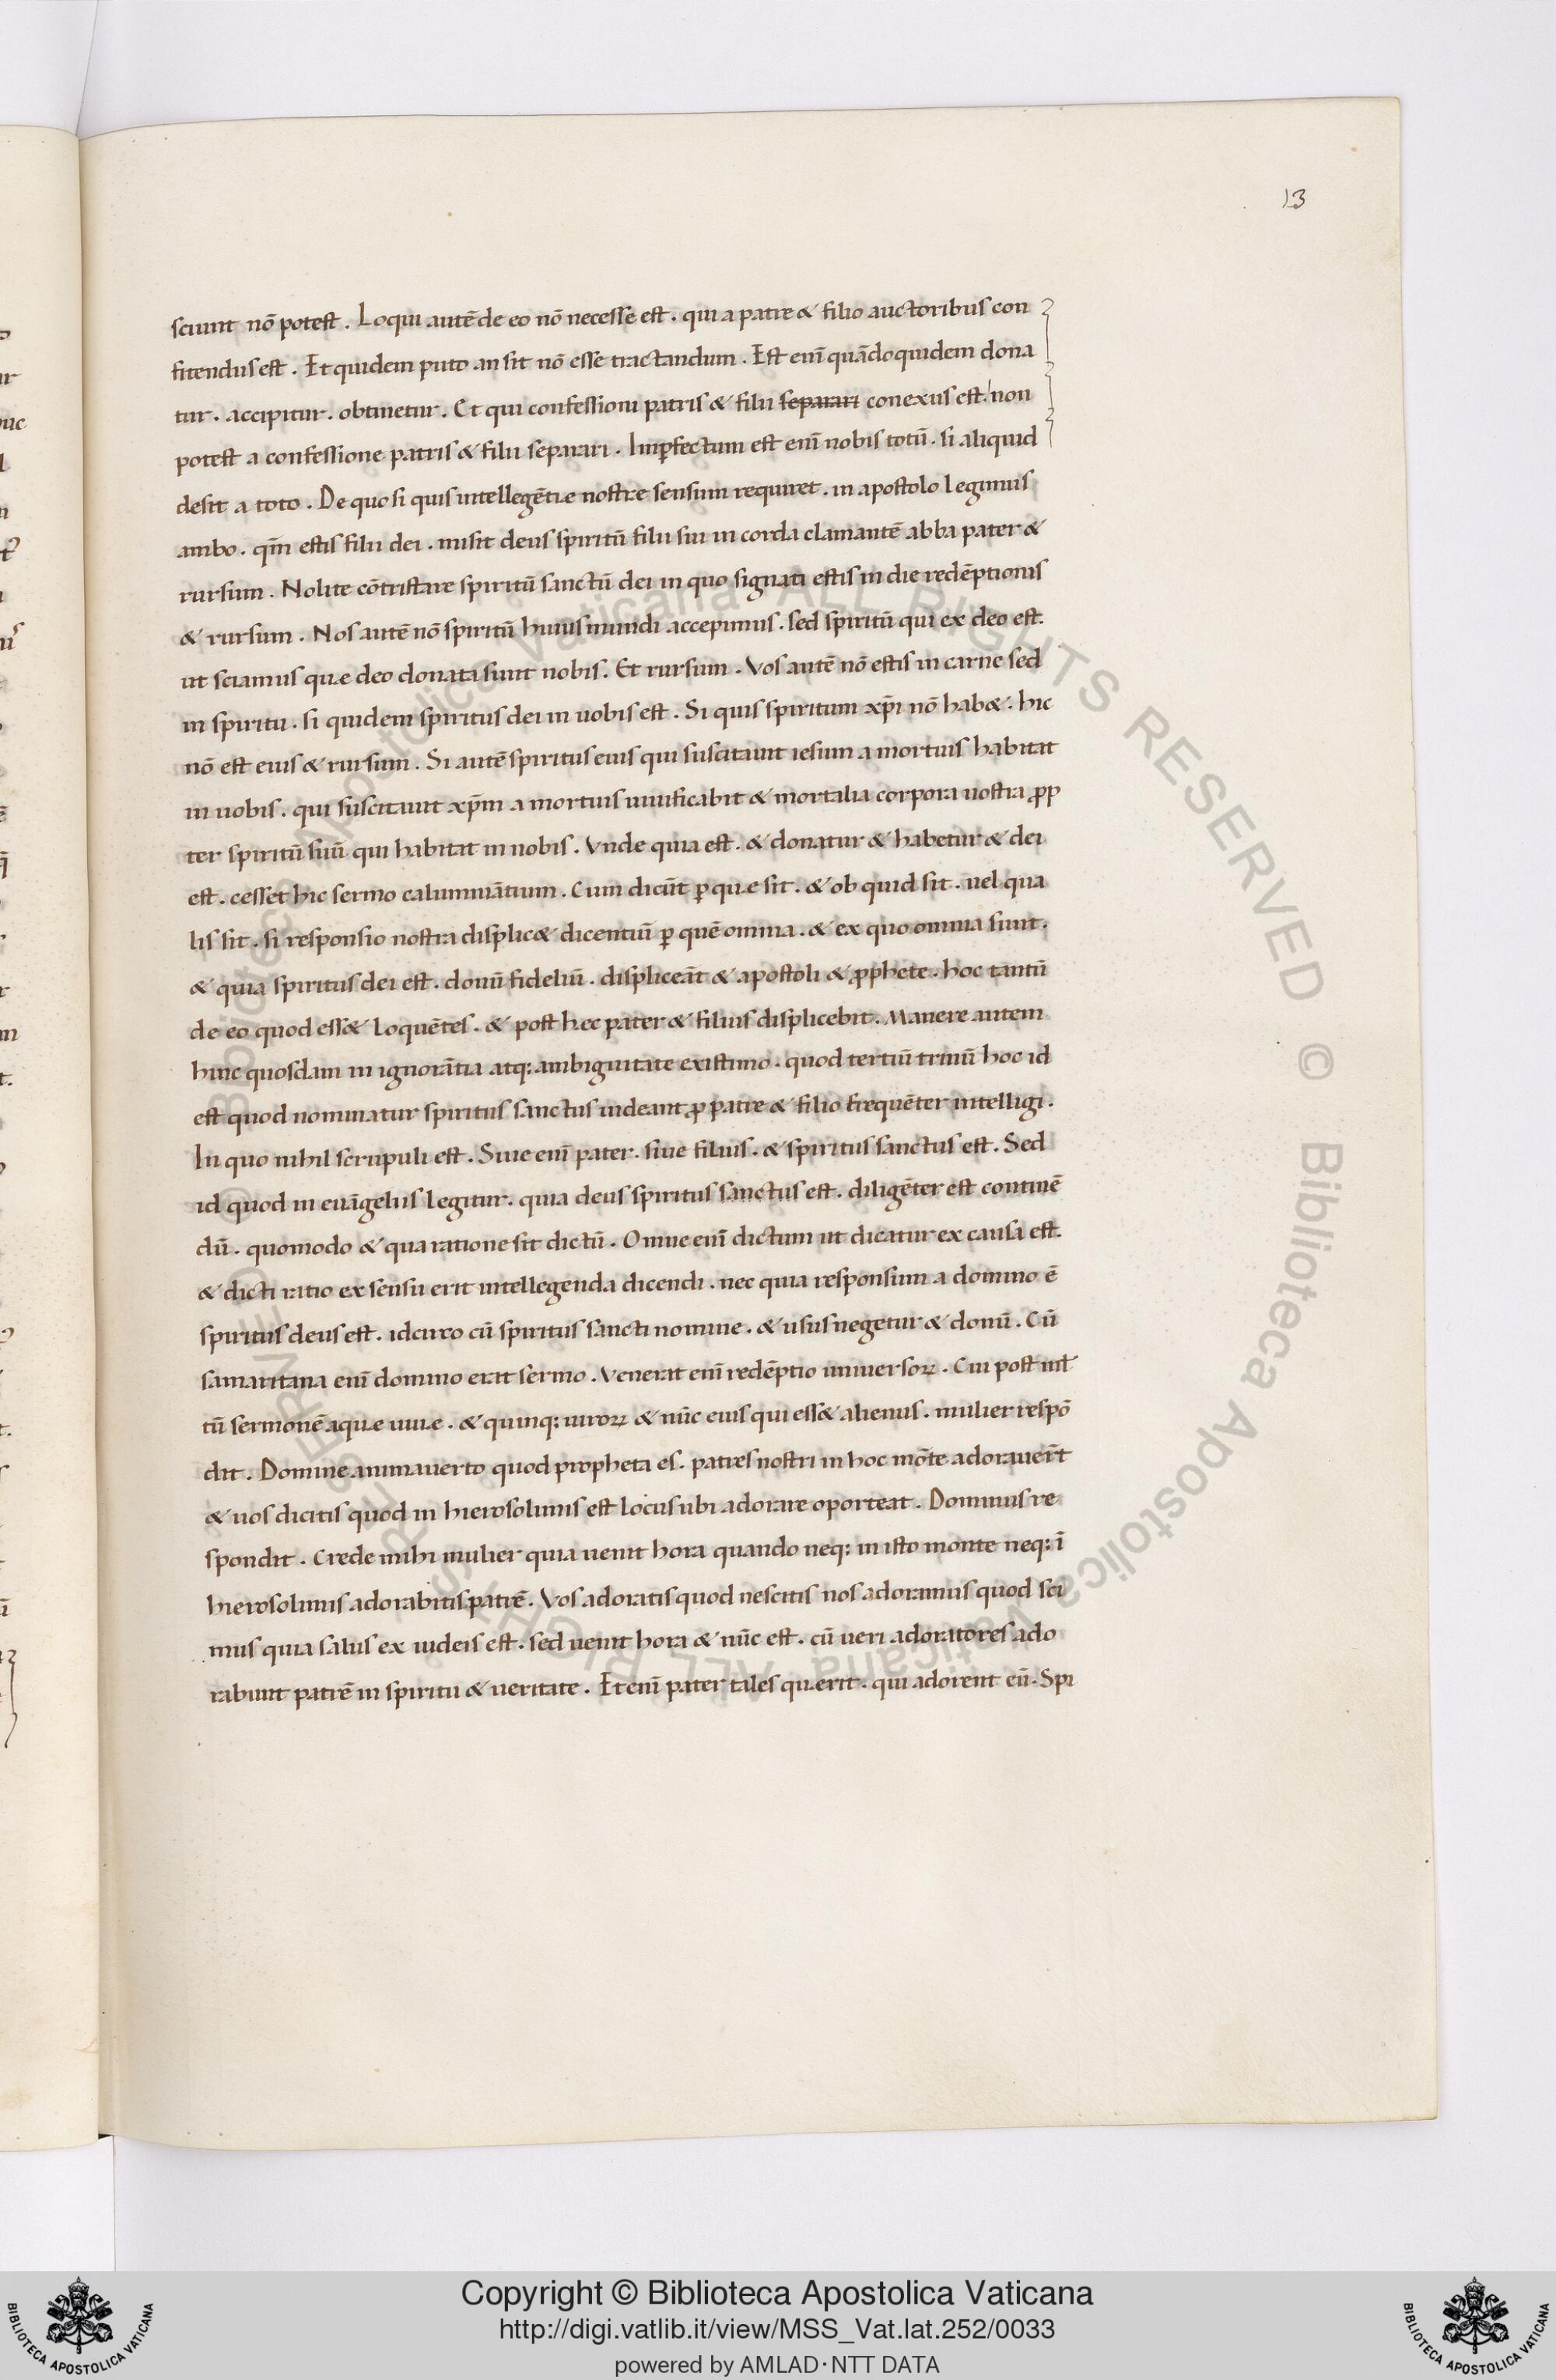 13
sciunt nō potest. Loqui autē de eo nō necesse est. qui a patre & filio auctoribus con
fitendus est. Et quidem puto an sit nō esse tractandum. Est enī quādoquidem dona
tur. accipitur. obtinetur. Et qui confessioni patris & filii separari conexus est. non
potest a confessione patris & filii separari. Imꝑfectum est enī nobis totū. si aliquid
desit a toto. De quo si quis intellegētie nostre sensum requiret. in apostolo legimus
ambo. qm̄ estis filii dei. misit deus spiritū filii sui in corda clamantē abba pater &
rursum. Nolite cōtristare spiritū sanctū dei in quo signati estis in die redēptionis
& rursum. Nos autē nō spiritū huius mundi accepimus. sed spiritū qui ex deo est.
ut sciamus que deo donata sunt nobis. Et rursum. Vos autē nō estis in carne sed
in spiritu. si quidem spiritus dei in uobis est. Si quis spiritum xp̄i nō hab&. hic
nō est eius & rursum. Si autē spiritus eius qui suscitauit iesum a mortuis habitat
in uobis. qui suscitauit xp̄m a mortuis uiuificabit & mortalia corpora uostra ꝓp
ter spiritū suū qui habitat in uobis. Vnde quia est. & donatur & habetur & dei
est. cesset hic sermo calumniātium. Cum dicūt ꝑ que sit. & ob quid sit. uel qua
lis sit. si responsio nostra displic& dicentiū ꝑ quē omnia. & ex quo omnia sunt.
& quia spiritus dei est. donū fideliū. displiceāt & apostoli & ꝓphete. hoc tantū
de eo quod ess& loquētes. & post hec pater & filius displicebit. Manere autem
hinc quosdam in ignorātia atq: ambiguitate existimo. quod tertiū trinū hoc id
est quod nominatur spiritus sanctus uideant ꝓ patre & filio frequēter intelligi.
In quo nihil scrupuli est. Siue enī pater. siue filius. & spiritus sanctus est. Sed
id quod in euāgeliis legitur. quia deus spiritus sanctus est. diligēter est continē
dū. quomodo & qua ratione sit dictū. Omne enī dictum ut dicatur ex causa est.
& dicti ratio ex sensu erit intellegenda dicendi. nec quia responsum a domino ē
spiritus deus est. idcirco cū spiritus sancti nomine. & usus negetur & donū. Cū
samaritana enī domino erat sermo. Venerat enī redēptio uniuersoꝝ. Cui post ml̄
tū sermonē aque uiue. & quinq: uiroꝝ & nūc eius qui ess& alienus. mulier respō
dit. Domine animauerto quod propheta es. patres nostri in hoc mōte adorauer̄t
& uos dicitis quod in hierosolimis est locus ubi adorare oporteat. Dominus re
spondit. Crede mihi mulier quia uenit hora quando neq: in isto monte neq: ī
hierosolimis adorabitis patrē. Vos adoratis quod nescitis nos adoramus quod sci
mus quia salus ex iudeis est. sed uenit hora & nūc est. cū ueri adoratores ado
rabunt patrē in spiritu & ueritate. Etenī pater tales querit. qui adorent eū. Spi
© Biblioteca Apostolica Vaticana ALL RIGHTS RESERVED © Biblioteca Apostolica Vaticana ALL RIGHTS RESERVED
Copyright © Biblioteca Apostolica Vaticana
http://digi.vatlib.it/view/MSS_Vat.lat.252/0033
powered by AMLAD·NTT DATA
BIBLIOTECA APOSTOLICA VATICANA
BIBLIOTECA APOSTOLICA VATICANA